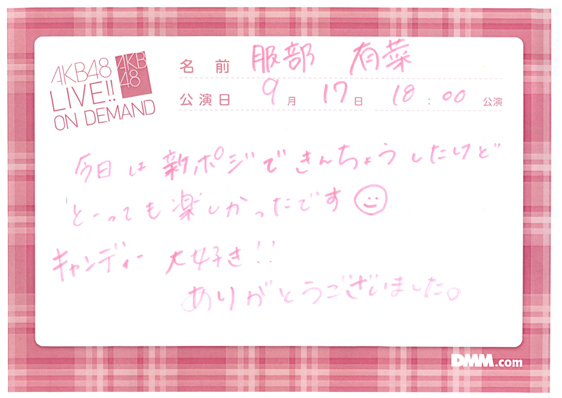 AKB48
LIVE!!
ON DEMAND
AKB
48
名前 服部 有菜
公演日 9月 17日 18:00 公演
今日は新ポジできんちょうしたけど
とーっても楽しかったです
キャンディー 大好き!!
ありがとうございました。
DMM.com